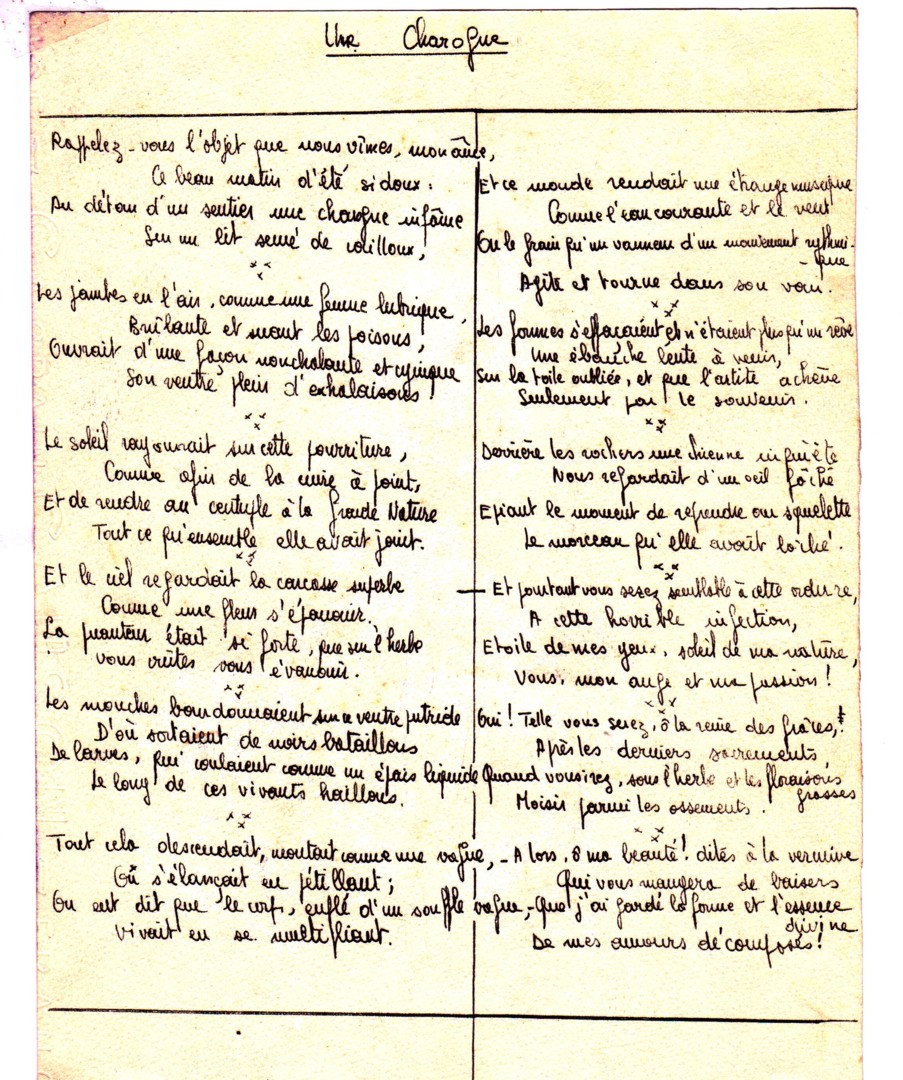 Une Charogne
Rappelez-vous l'objet que nous vîmes, mon âme,
Ce beau matin d'été si doux :
Au détour d'un sentier une charogne infâme
Sur un lit semé de cailloux,
Les jambes en l'air, comme une femme lubrique,
Brûlante et suant les poisons,
Ouvrait d'une façon nonchalante et cynique
Son ventre plein d'exhalaisons
Le soleil rayonnait sur cette pourriture,
Comme afin de la cuire à point,
Et de rendre au centuple à la Grande Nature
Tout ce qu'ensemble elle avait joint.
Et le ciel regardait la carcasse superbe
Comme une fleur s'épanouir.
La puanteur était si forte, que sur l'herbe
Vous crûtes vous évanouir.
Les mouches bourdonnaient sur ce ventre putride
D'où sortaient de noirs bataillons
De larves, qui coulaient comme un épais liquide
Le long de ces vivants haillons.
Tout cela descendait, montait comme une vague,
Où s'élançait en pétillant ;
On eut dit que le corps, enflé d'un souffle vague,
Vivait en se multipliant.
Et ce monde rendait une étrange musique
Comme l'eau courante et le vent
Ou le grain qu'un vanneur d'un mouvement rythmi-
-que
Agite et tourne dans son van.
Les formes s'effaçaient et n'étaient plus qu'un rêve
Une ébauche lente à venir,
Sur la toile oubliée, et que l'artiste achève
Seulement par le souvenir.
Derrière les rochers une chienne inquiète
Nous regardait d'un oeil fâché
Epiant le moment de reprendre au squelette
Le morceau qu'elle avait lâché.
— Et pourtant vous serez semblable à cette ordure,
A cette horrible infection,
Etoile de mes yeux, soleil de ma nature,
Vous, mon ange et ma passion !
Oui ! Telle vous serez, ô la reine des grâces,
Après les derniers sacrements,
Quand vous irez, sous l'herbe et les floraisons
grasses
Moisir parmi les ossements.
- Alors, ô ma beauté ! dites à la vermine
Qui vous mangera de baisers
- Que j'ai gardé la forme et l'essence
divine
De mes amours décomposés !